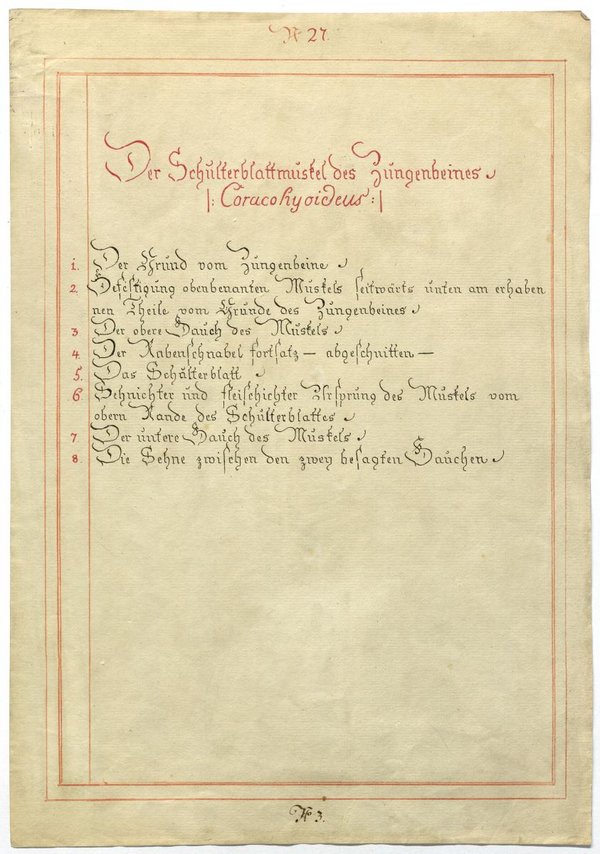 N 27.
Der Schulterblattmuskel des Zungenbeines
|: Coracohyoideus :|
1. Der Grund vom Zungenbeine
2. Befestigung obenbenanten Muskels seitwärts unten am erhaben
nen Theile vom Grunde des Zungenbeines
3. Der obere Bauch des Muskels
4. Der Rabenschnabel fortsatz — abgeschnitten —
5. Das Schulterblatt
6 Sehnichter und fleischichter Ursprung des Muskels vom
obern Rande des Schulterblattes
7 Der untere Bauch des Muskels
8. Die Sehne zwischen den zwey besagten Bauchen
No 3.